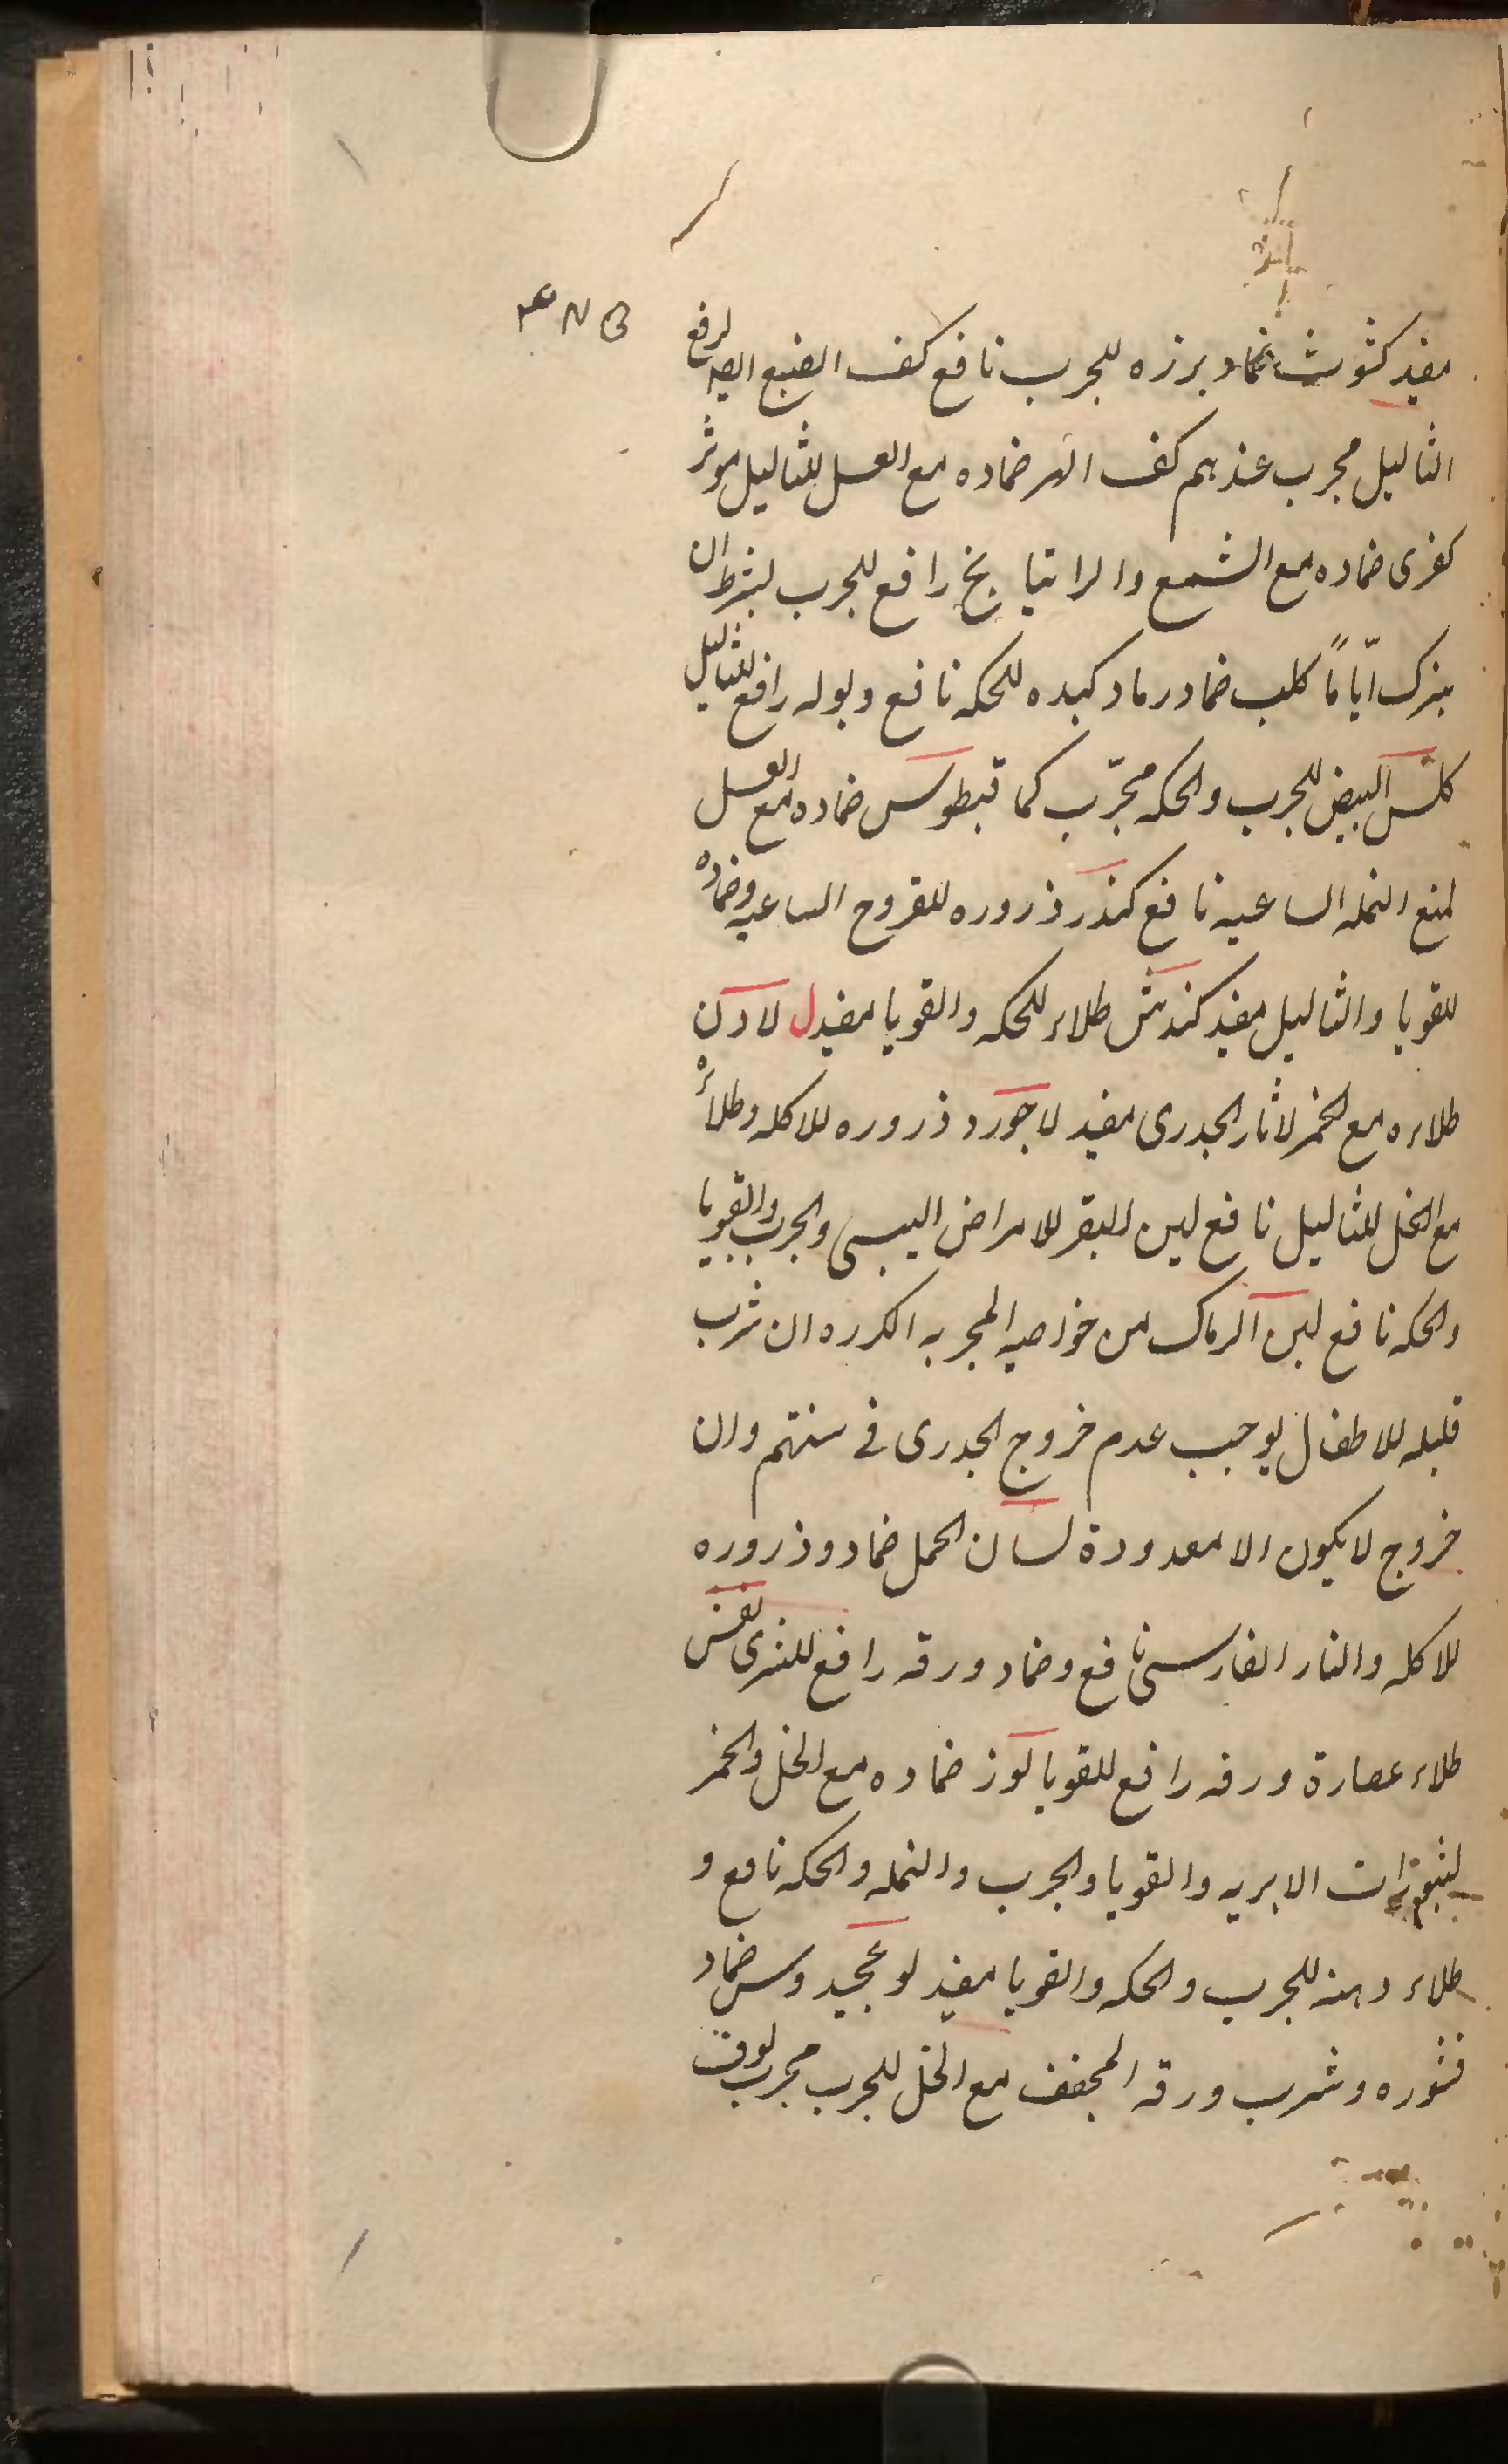 مفيد كشوث ضماد برزه للجرب نافع كف الضبع لرفع
الثاليل مجرب عندهم كف الهر ضماده مع العسل للثاليل موثر
كفرى ضماده مع الشمع والراتيانج رافع للجرب بشرط ان
يترك ايّاماً كلب ضماد رماد كبده للحكه نافع وبوله رافع للثاليل
كلس البيض للجرب والحكه مجرّب كما قيطوس ضماده مع العسل
لمنع النمله الساعيه نافع كندر ذروره للقروح الساعيه وضماده
للقوبا والثاليل مفيد كندش طلاء للحكه والقوبا مفيد ل لادن
طلاءه مع الخمر لاثار الجدرى مفيد لاجورد ذروره للاكله وطلائه
مع الخل للثاليل نافع لبن البقر للامراض اليبسى والجرب والقوبا
والحكه نافع لبن الرماك من خواصه المجربه المكرره ان شرب
قليله للاطفال يوجب عدم خروج الجدرى فى سنتهم وان
خروج لا يكون الا معدودة لسان الحمل ضماد وذروره
للاكله والنار الفارسى نافع وضماد ورقه رافع للشرى
طلاء عصارة ورقه رافع للقوبا لوز ضماده مع الخل والخمر
الابريه والقوبا والجرب والنمله والحكه نافع و
طلاء دهنه للجرب والحكه والقوبا مفيد ضماد
قشوره وشرب ورقه المجفف مع الخل للجرب مجرب لوف